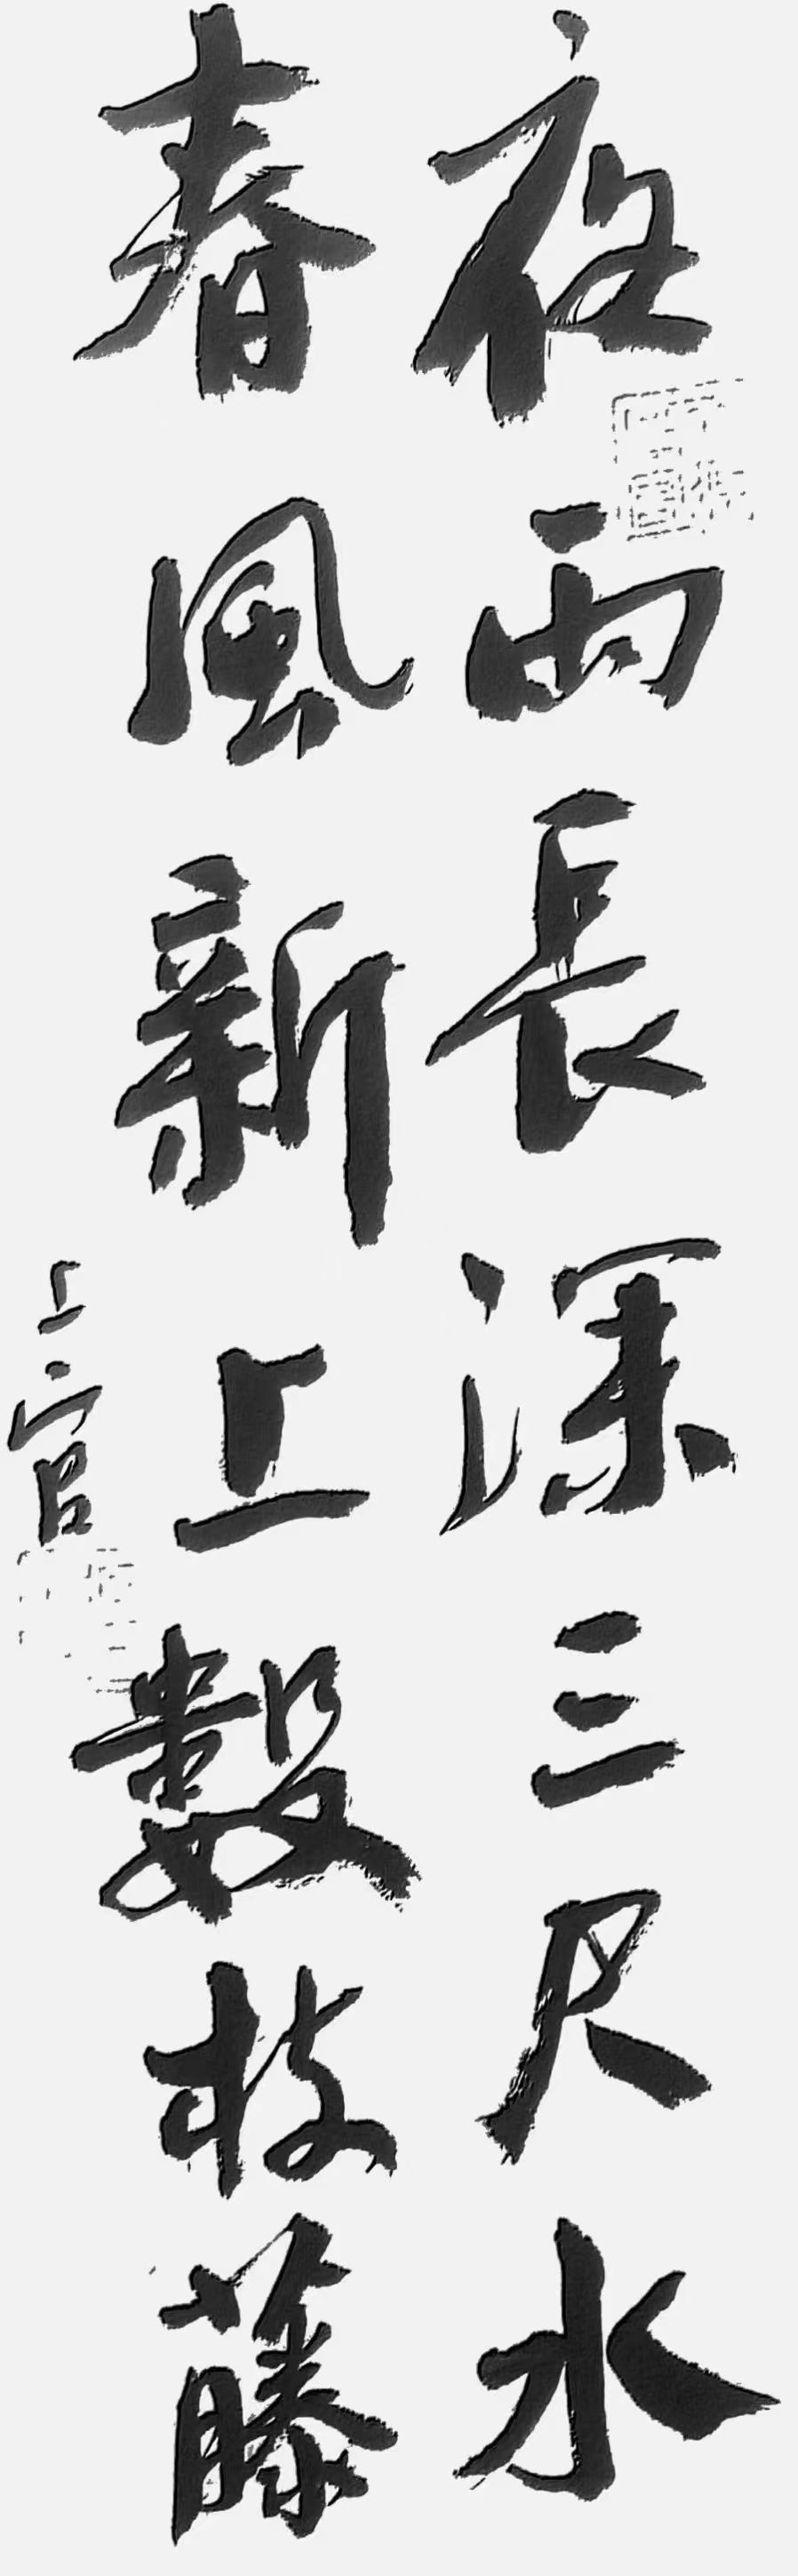 夜雨長深三尺水
春風新上數枝藤
上官